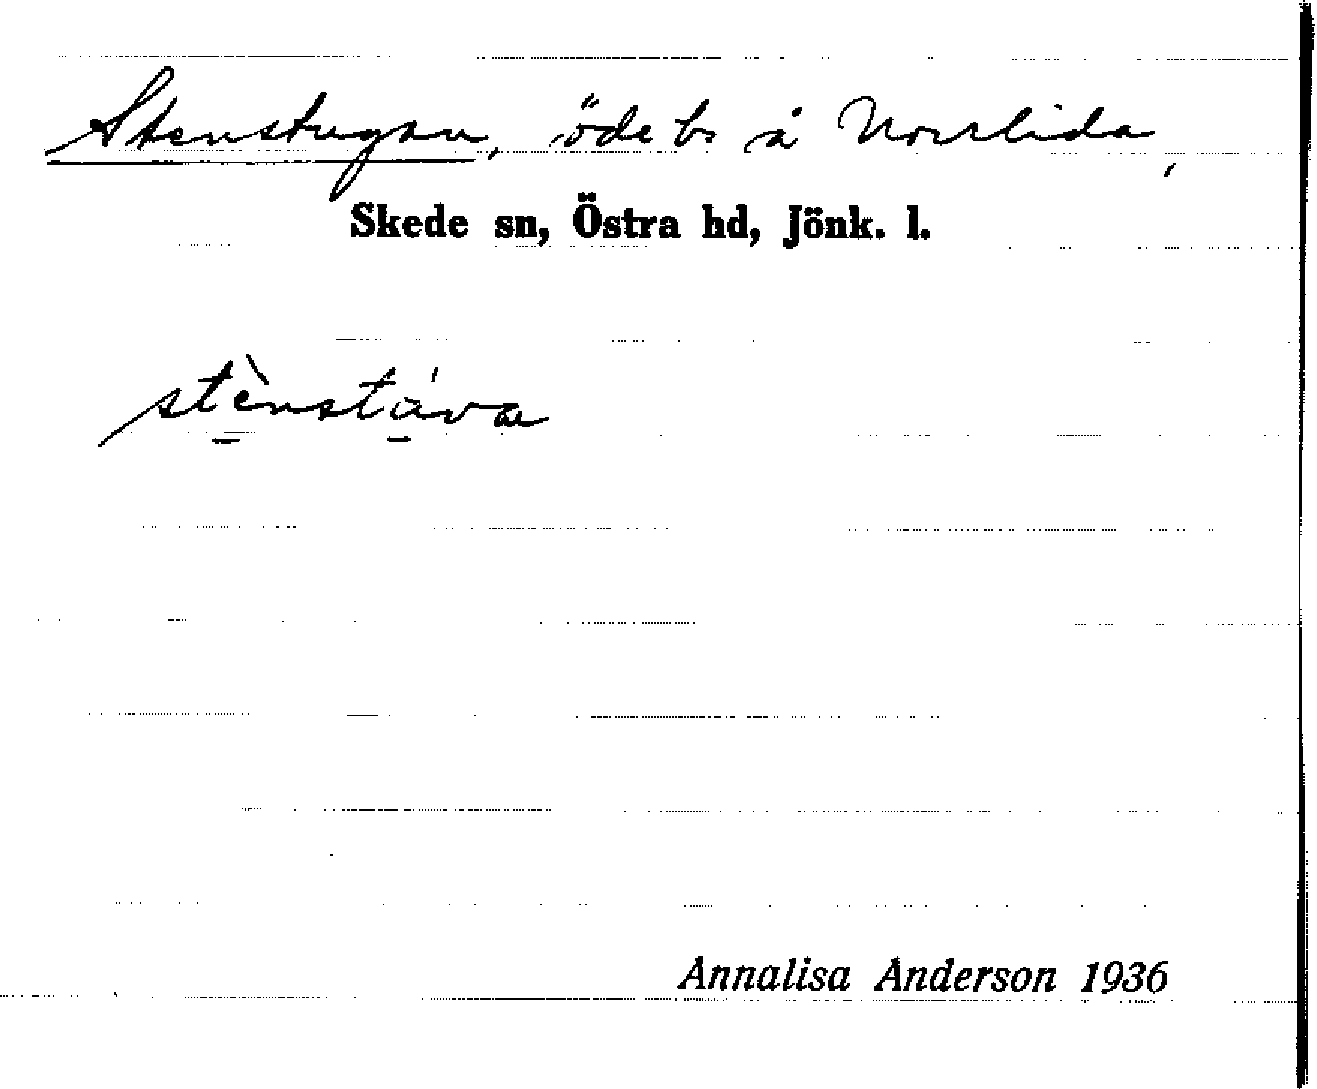 Stenstugan, öde bs å Norrlida,
Skede sn, Östra hd, Jönk. l.
stènstáva
Annalisa Anderson 1936